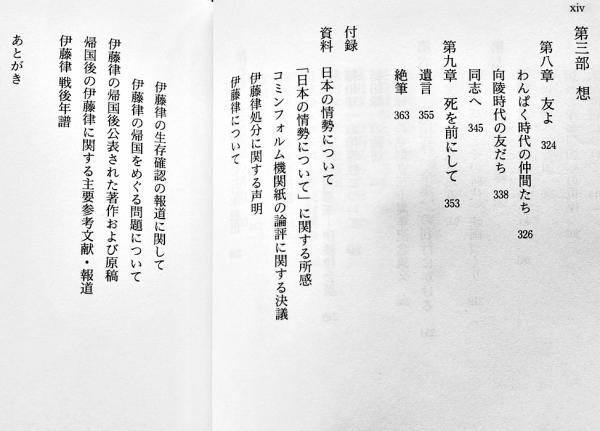 xiv
第三部 想
第八章 友よ 324
わんぱく時代の仲間たち 326
向陵時代の友だち 338
同志へ 345
第九章 死を前にして 353
遺言 355
絶筆 363
付録
資料 日本の情勢について
「日本の情勢について」に関する所感
コミンフォルム機関紙の論評に関する決議
伊藤律処分に関する声明
伊藤律について
伊藤律の生存確認の報道に関して
伊藤律の帰国をめぐる問題について
伊藤律の帰国後公表された著作および原稿
帰国後の伊藤律に関する主要参考文献・報道
伊藤律 戦後年譜
あとがき